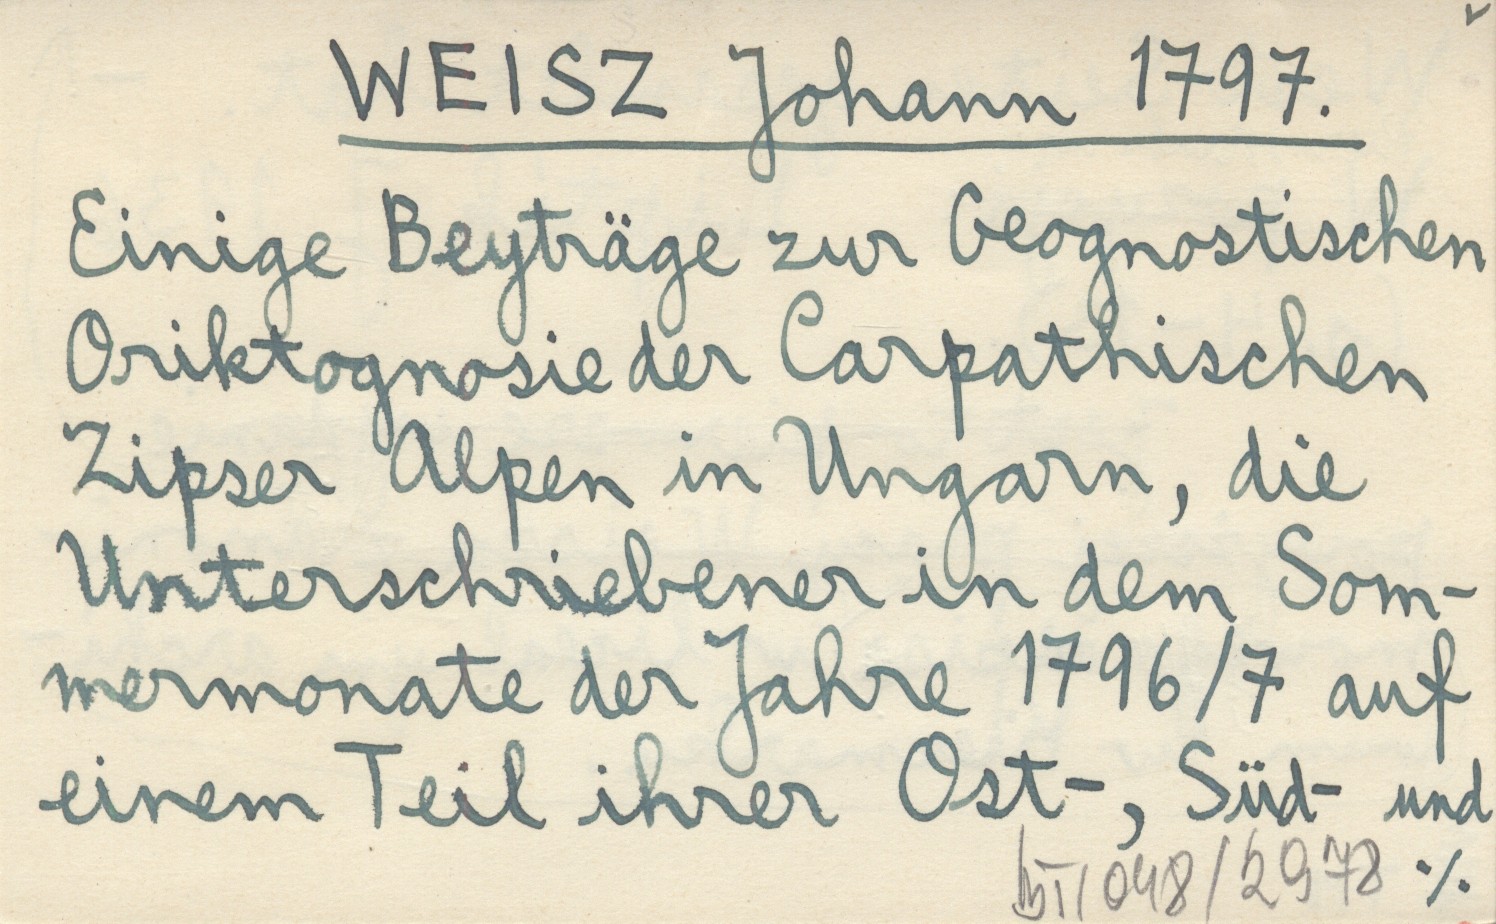 WEISZ Johann 1797.
Einige Beyträge zur Geognostischen
Oriktognosie der Carpathischen
Zipser Alpen in Ungarn, die
Unterschriebener in dem Som-
mermonate der Jahre 1796/7 auf
einem Teil ihrer Ost-, Süd- und
048/2978 ./.